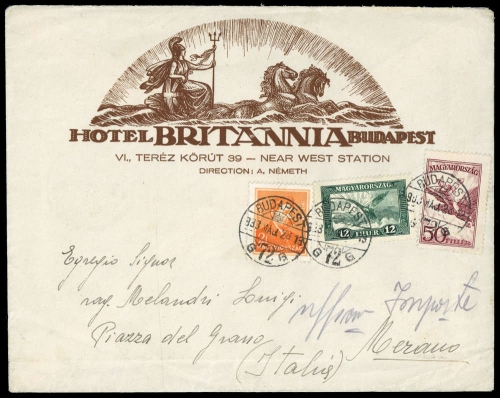 HOTEL BRITANNIA BUDAPEST
VI., TERÉZ KÖRÚT 39 — NEAR WEST STATION
DIRECTION: A. NÉMETH
MAGYARORSZÁG
12 FILLÉR 12
MAGYARORSZÁG
50 FILLÉR
BUDAPEST
72
BUDAPEST
72
Egregio Signor
rag. Melandri Luigi
Piazza del Grano
Merano
(Italia)